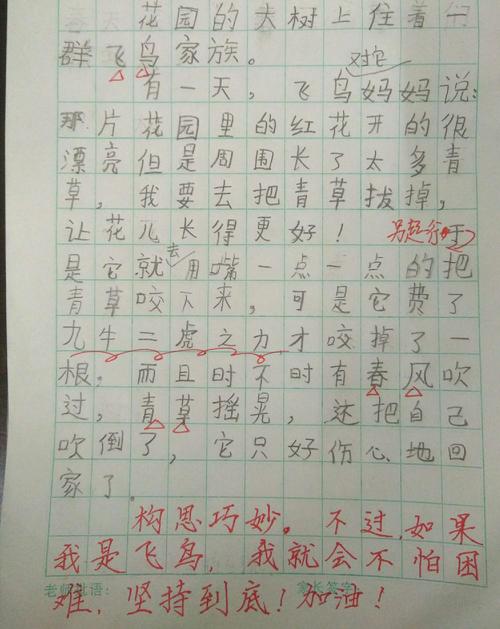 花园的大树上住着一
群飞鸟家族。
对它
有一天，飞鸟妈妈说：
那片花园里的红花开的很
漂亮但是周围长了太多青
草，我要去把青草拔掉，
让花儿长得更好！于
去
是它就用嘴一点一点的把
青草咬下来，可是它费了
九牛二虎之力才咬掉了一
根。而且时不时有春风吹
过，青草摇晃，还把自己
吹倒了，它只好伤心地回
家了。
构思巧妙。不过，如果
我是飞鸟，我就会不怕困
难，坚持到底！加油！
老师批语： 家长签字